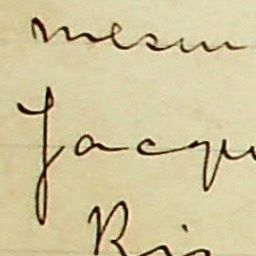 mesu
Jacqu
Ris